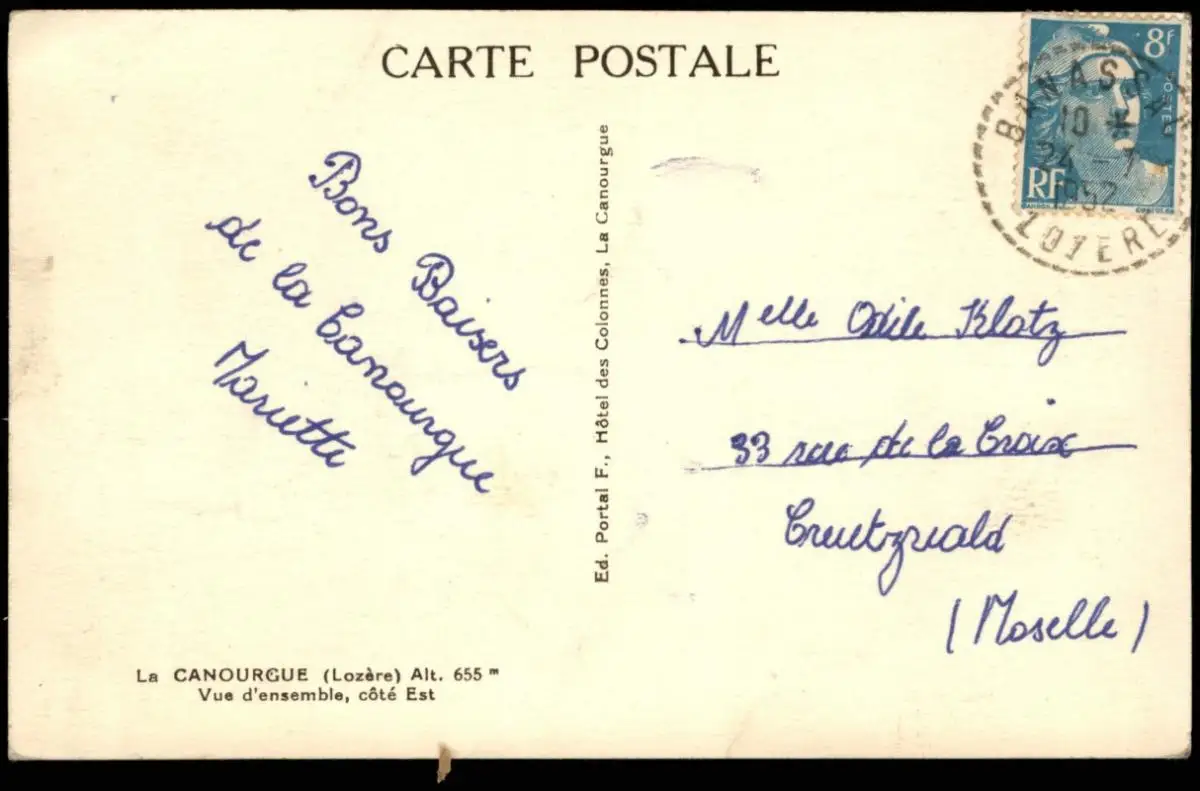 CARTE POSTALE
8f
POSTES
RF
BANASSAC
10 *
24 - 7
1952
LOZERE
Bons Baisers
de la Canourgue
Mariette
Ed. Portal F., Hôtel des Colonnes, La Canourgue
Melle Odile Klotz
33 rue de la Croix
Creutzwald
(Moselle)
La CANOURGUE (Lozère) Alt. 655 m
Vue d'ensemble, côté Est